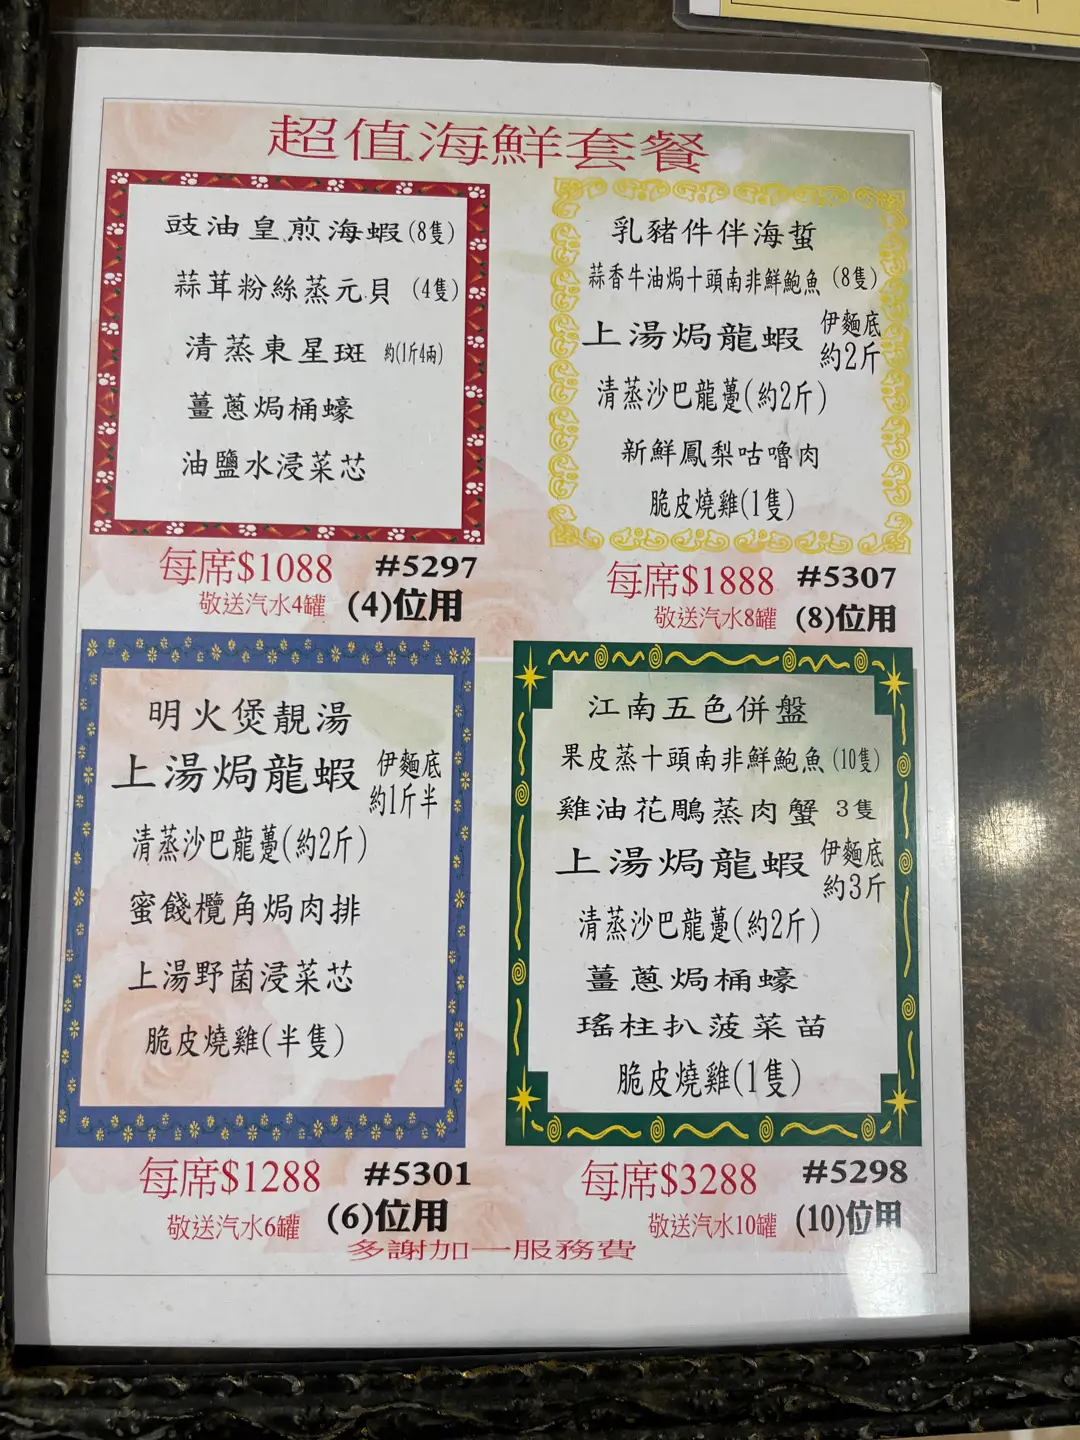 超值海鮮套餐
豉油皇煎海蝦(8隻)
蒜茸粉絲蒸元貝 (4隻)
清蒸東星斑 約(1斤4兩)
薑蔥焗桶蠔
油鹽水浸菜芯
每席$1088 #5297
敬送汽水4罐 (4)位用
乳豬件伴海蜇
蒜香牛油焗十頭南非鮮鮑魚 (8隻)
上湯焗龍蝦 伊麵底
約2斤
清蒸沙巴龍躉(約2斤)
新鮮鳳梨咕嚕肉
脆皮燒雞(1隻)
每席$1888 #5307
敬送汽水8罐 (8)位用
明火煲靚湯
上湯焗龍蝦 伊麵底
約1斤半
清蒸沙巴龍躉(約2斤)
蜜餞欖角焗肉排
上湯野菌浸菜芯
脆皮燒雞(半隻)
每席$1288 #5301
敬送汽水6罐 (6)位用
江南五色併盤
果皮蒸十頭南非鮮鮑魚 (10隻)
雞油花鵰蒸肉蟹 3隻
上湯焗龍蝦 伊麵底
約3斤
清蒸沙巴龍躉(約2斤)
薑蔥焗桶蠔
瑤柱扒菠菜苗
脆皮燒雞(1隻)
每席$3288 #5298
敬送汽水10罐 (10)位用
多謝加一服務費